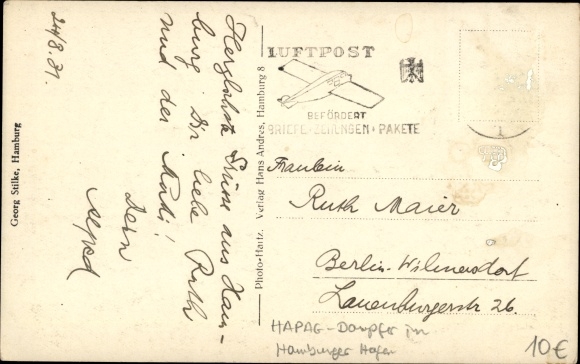 24/8.31.
Herzlichste Grüsse aus Ham-
burg Dir liebe Ruth
und der Madi!
Dein
Alfred
Georg Stilke, Hamburg
Photo-Hartz. Verlag Hans Andres, Hamburg 8
LUFTPOST
BEFÖRDERT
BRIEFE·ZEITUNGEN·PAKETE
Fräulein
Ruth Maier
Berlin-Wilmersdorf
Lauenburgerstr 26.
HAPAG-Dampfer im
Hamburger Hafen
10€